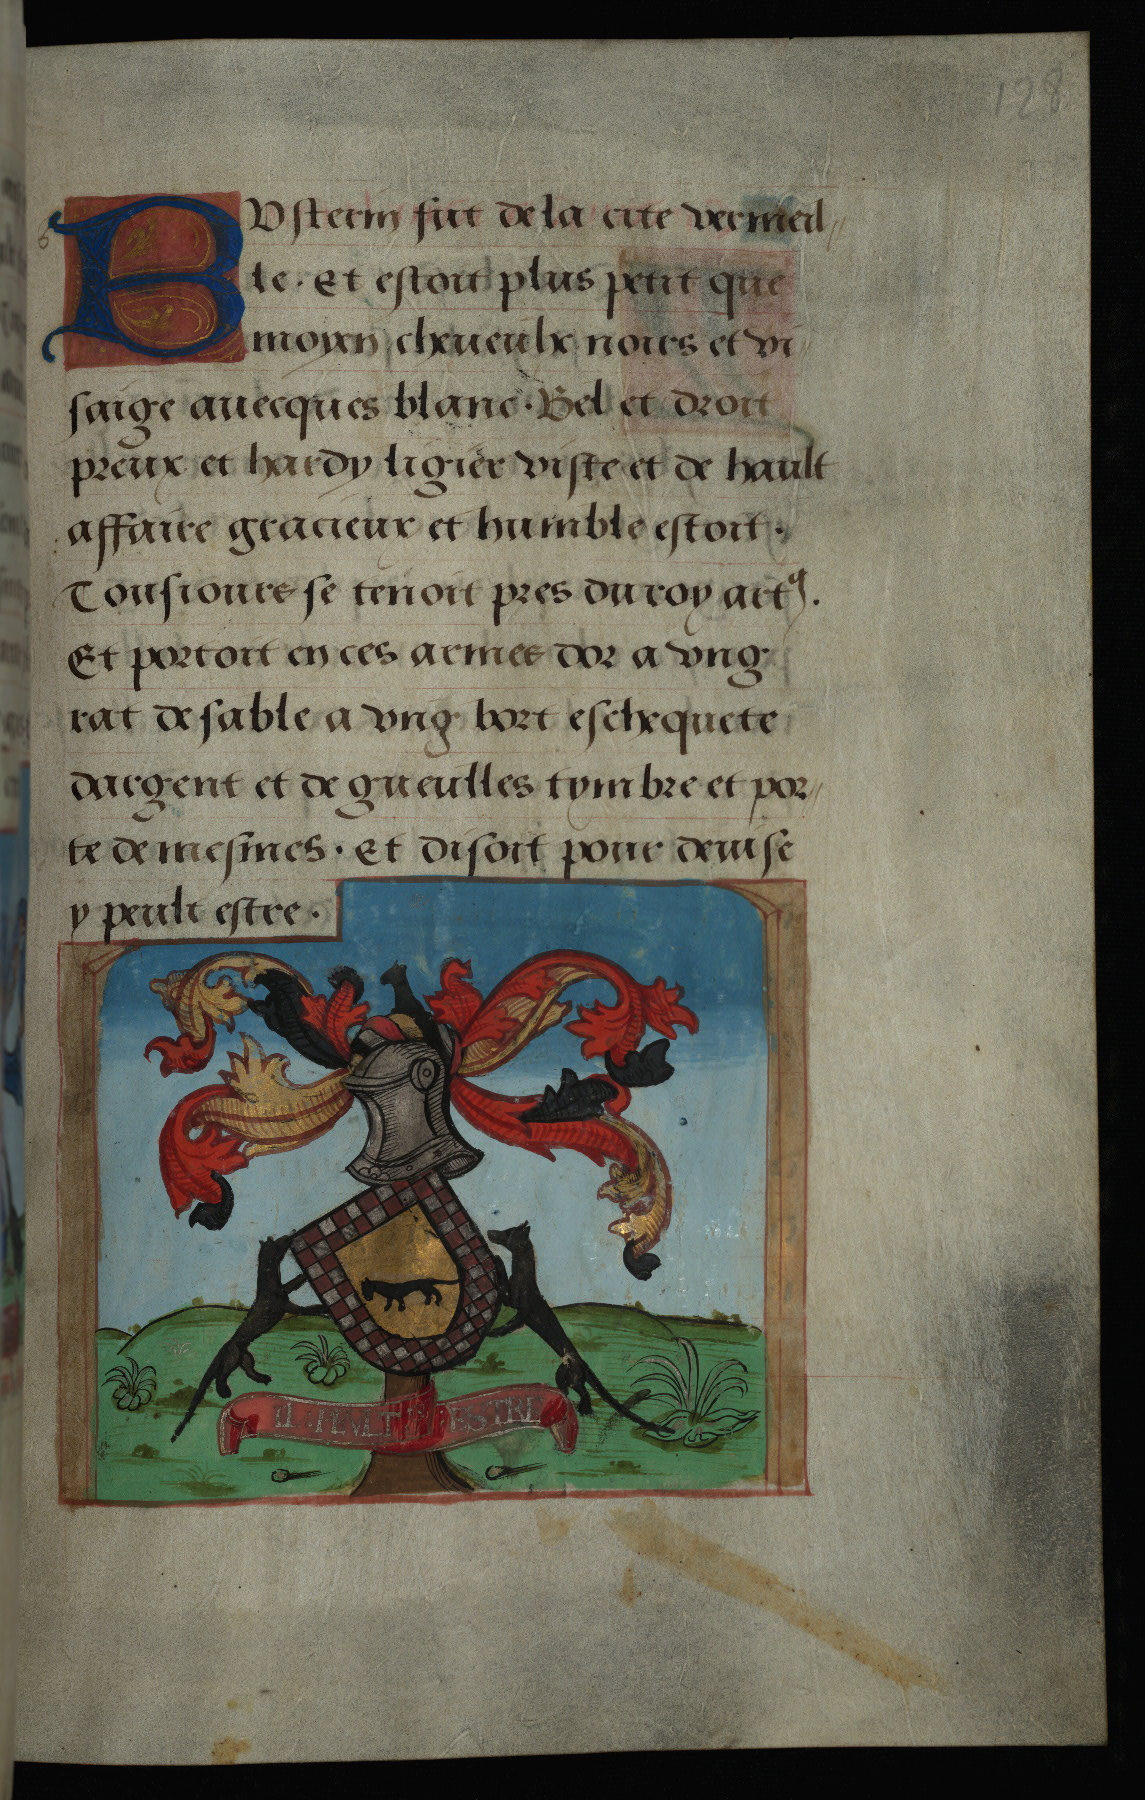 128
BVsterin fut de la cite vermeil
le. Et estoit plus petit que
moyen cheueulx noirs et vi
saige auecques blanc. Bel et droit
preux et hardy ligier viste et de hault
affaire gracieux et humble estoit.
Tousiours se tenoit pres du roy art9.
Et portoit en ces armes dor a vng
rat de sable a vng bort eschequete
dargent et de gueulles tymbre et por
te de mesmes. Et disoit pour deuise
y peult estre.
IL PEVLT ESTRE